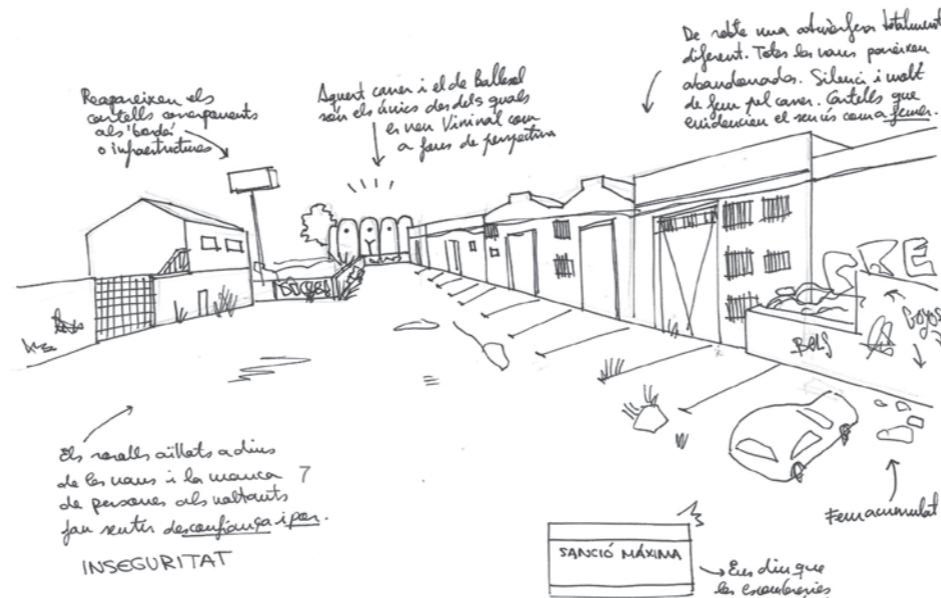 Reapareixen els
cartells corresponents
als 'bordes'
o infraestructures
Aquest carrer i el de Ballesol
són els únics des dels quals
es veu Vinival com
a fons de perspectiva
De sobte una atmòsfera totalment
diferent. Totes les naus pareixen
abandonades. Silenci i molt
de fem pel carrer. Cartells que
evidencien el seu ús com a femer.
BOLS
Els sorolls aïllats a dins
de les naus i la manca
de persones als voltants
fan sentir desconfiança i por.
INSEGURITAT
Fem acumulat
SANCIÓ MÁXIMA
Ens diu que
les escombraries